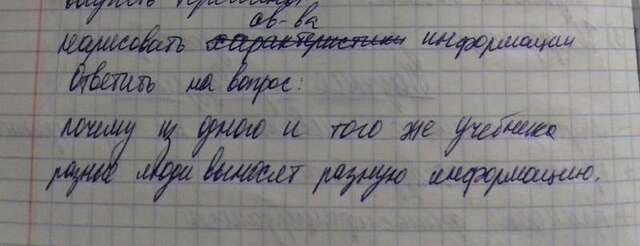 выучить термины
св-ва
нарисовать характеристики информации
Ответить на вопрос:
почему из одного и того же учебника
разные люди выносят разную информацию.